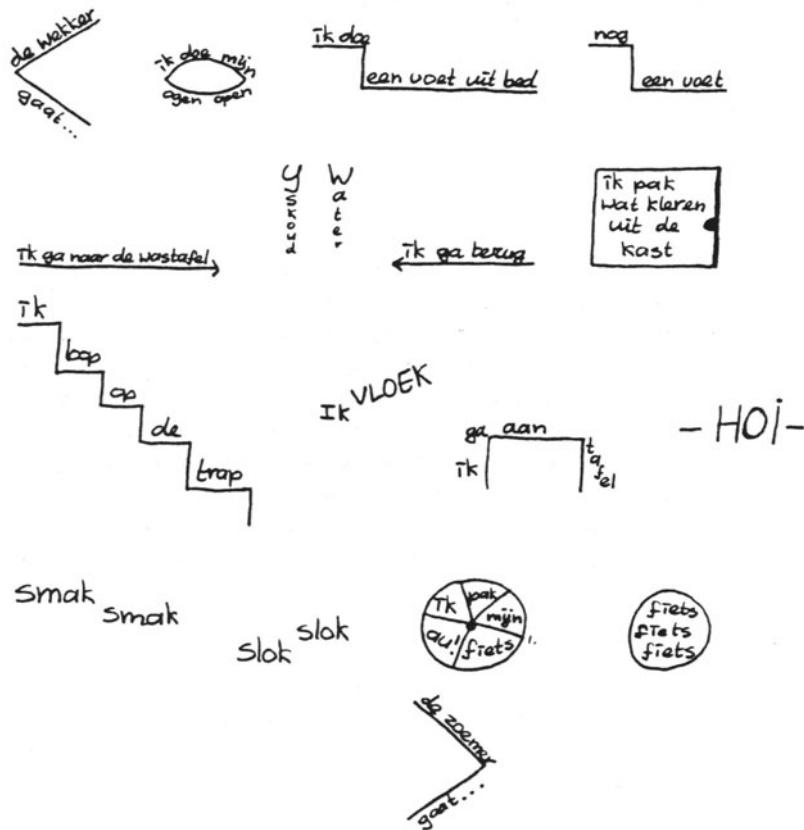 de wekker
gaat...
ik doe mijn
ogen open
ik doe
een voet uit bed
nog
een voet
ik ga naar de wastafel
Yskoud
Water
ik ga terug
ik pak
wat kleren
uit de
kast
ik
loop
op
de
trap
Ik VLOEK
ik
ga aan
tafel
- HOI -
smak
smak
slok
slok
ik pak mijn
fiets
au!
fiets
fiets
fiets
de zoemer
gaat...